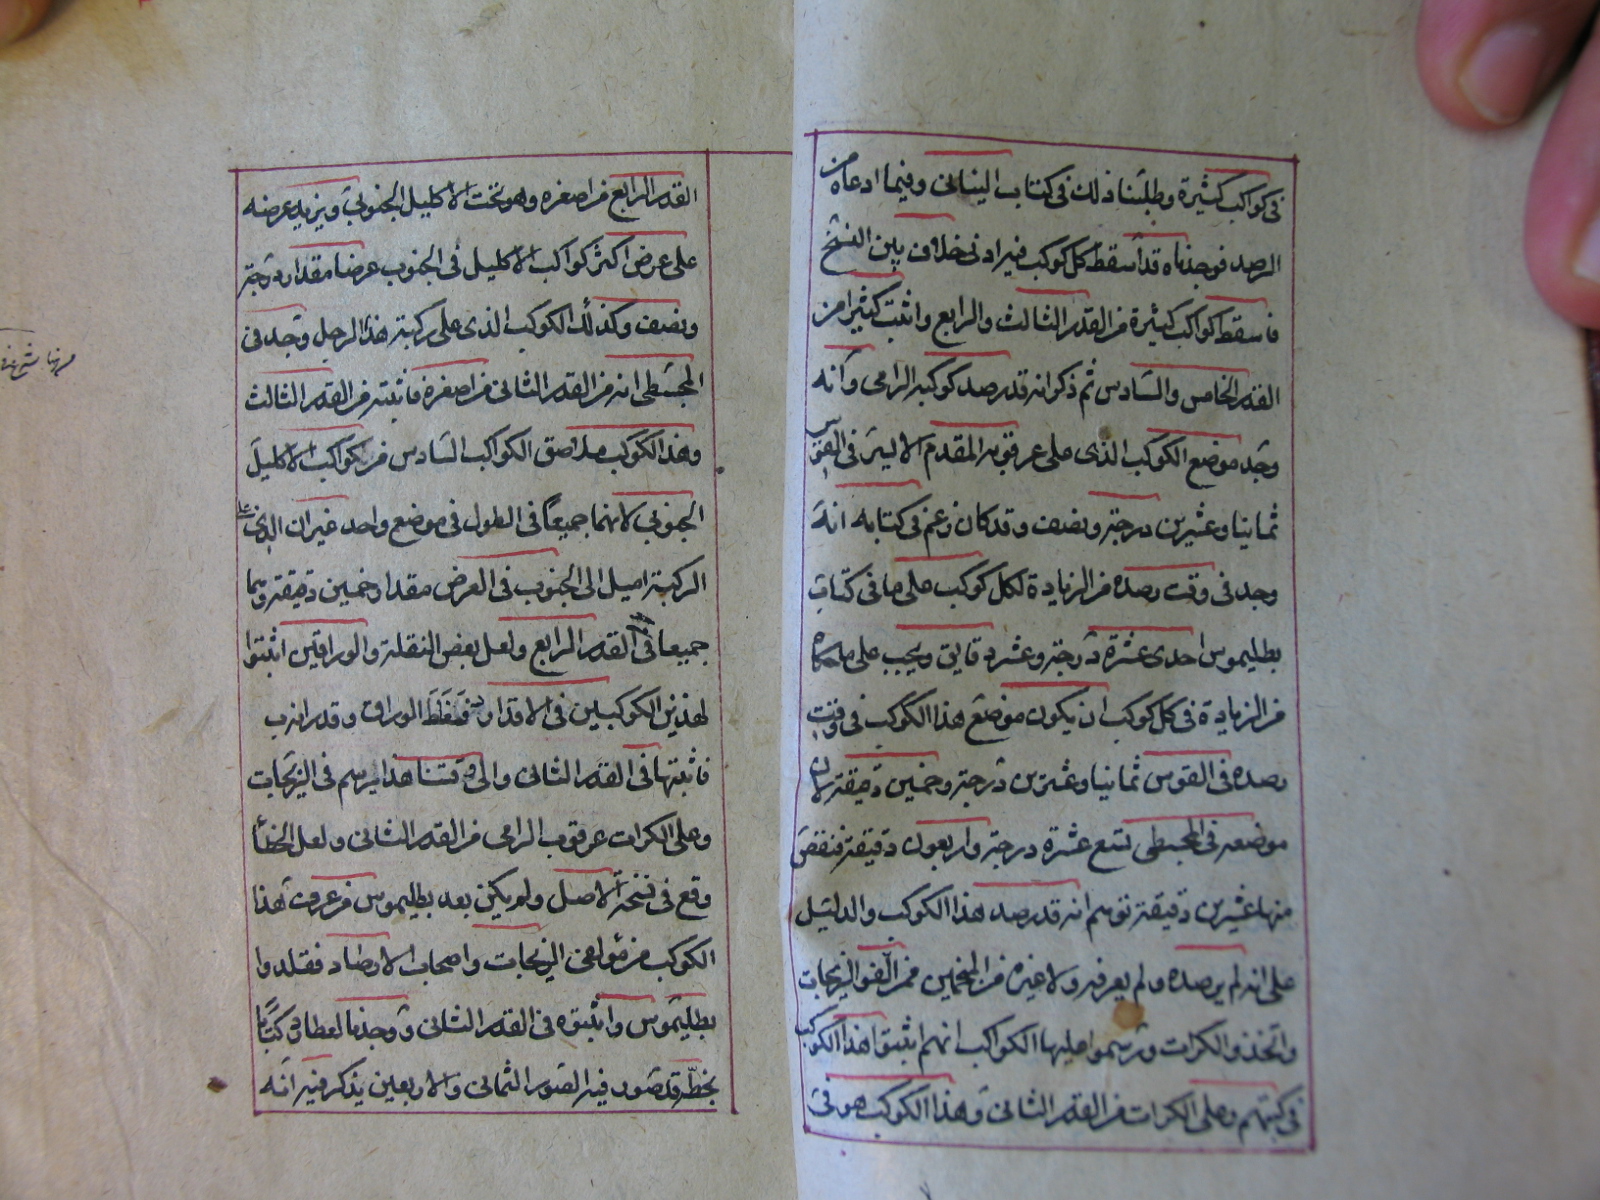 فى كواكب كثيرة وطلبنا ذلك فى كتاب البتانى وفيما ادعاه من
الرصد فوجدناه قد أسقط كل كوكب فيه ادنى خلاف بين النسخ
فاسقط كواكب كثيرة من القدر الثالث والرابع واثبت كثيرا من
القدر الخامس والسادس ثم ذكر انه قد رصد كوكبه الرامى وأنه
وجد موضع الكوكب الذى على عرقوبه المقدم الايسر فى القوس
ثمانيا وعشرين درجة ونصف وقد كان زعم فى كتابه انه
وجد فى وقت رصده من الزيادة لكل كوكب على ما فى كتاب
بطليموس احدى عشرة درجة وعشر دقايق ويجب على ما حكاه
من الزيادة فى كل كوكب ان يكون موضع هذا الكوكب فى وقت
رصده فى القوس ثمانيا وعشرين درجة وخمسين دقيقة لان
موضعه فى المجسطى تسع عشرة درجة واربعون دقيقة فنقص
منها عشرين دقيقة توهم انه قد رصد هذا الكوكب والدليل
على انه لم يرصده ولم يعرفه ولا غيره من المنجمين ممن ألفوا الزيجات
واتخذوا الكرات ورسموا عليها الكواكب انهم اثبتوا هذا الكوكب
فى كتبهم وعلى الكرات من القدر الثانى وهذا الكوكب هو فى
القدر الرابع من اصغره وهو تحت الاكليل الجنوبى ويزيد عرضه
على عرض اكثر كواكب الاكليل فى الجنوب عرضا مقدار درجة
ونصف وكذلك الكوكب الذى على ركبة هذا الرجل وجد فى
المجسطى انه من القدر الثانى من اصغره فاثبته من القدر الثالث
وهذا الكوكب ملاصق الكوكب السادس من كواكب الاكليل
الجنوبى لانهما جميعا فى الطول فى موضع واحد غير ان الذى على
الركبة اميل الى الجنوب فى العرض مقدار خمسين دقيقة وهما
جميعا فى القدر الرابع ولعل بعض النقلة والوراقين اثبتوا
لهذين الكوكبين فى الاقدار د فغلط الوراق وقدر انه ب
فاثبتها فى القدر الثانى والى وقتنا هذا يرسم فى الزيجات
وعلى الكرات عرقوب الرامى من القدر الثانى ولعل الخطأ
وقع فى نسخة الاصل ولم يكن بعد بطليموس من عرف هذا
الكوكب من مؤلفى الزيجات واصحاب الارصاد فقلدوا
بطليموس واثبتوه فى القدر الثانى ووجدنا لعطارد كتابا
بخطه قد صور فيه الصور الثمانى والاربعين يذكر فيه انه